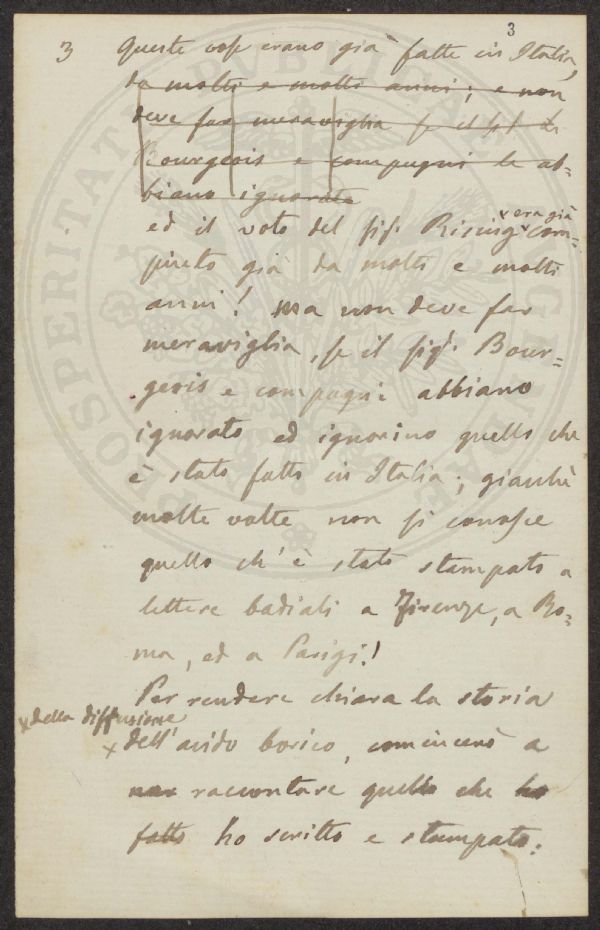 3
3 Queste cose erano già fatte in Italia,
da molti e molti anni; e non
deve far meraviglia se il sigr
Bourgeois e compagni le ab=
biano ignorate
ed il voto del sigr. Rising x era già x com=
piuto già da molti e molti
anni! Ma non deve far
meraviglia, se il sigr. Bour=
geois e compagni abbiano
ignorato ed ignorino quello che
è stato fatto in Italia; giacchè
molte volte non si conosce
quello ch'è stato stampato a
lettere badiali a Firenze, a Ro=
ma, ed a Parigi!
Per rendere chiara la storia
x della diffusione
x dell'acido borico, comincerò a
raccontare quello che ho
fatto ho scritto e stampato.
PROSPERITATI PUBLICAE